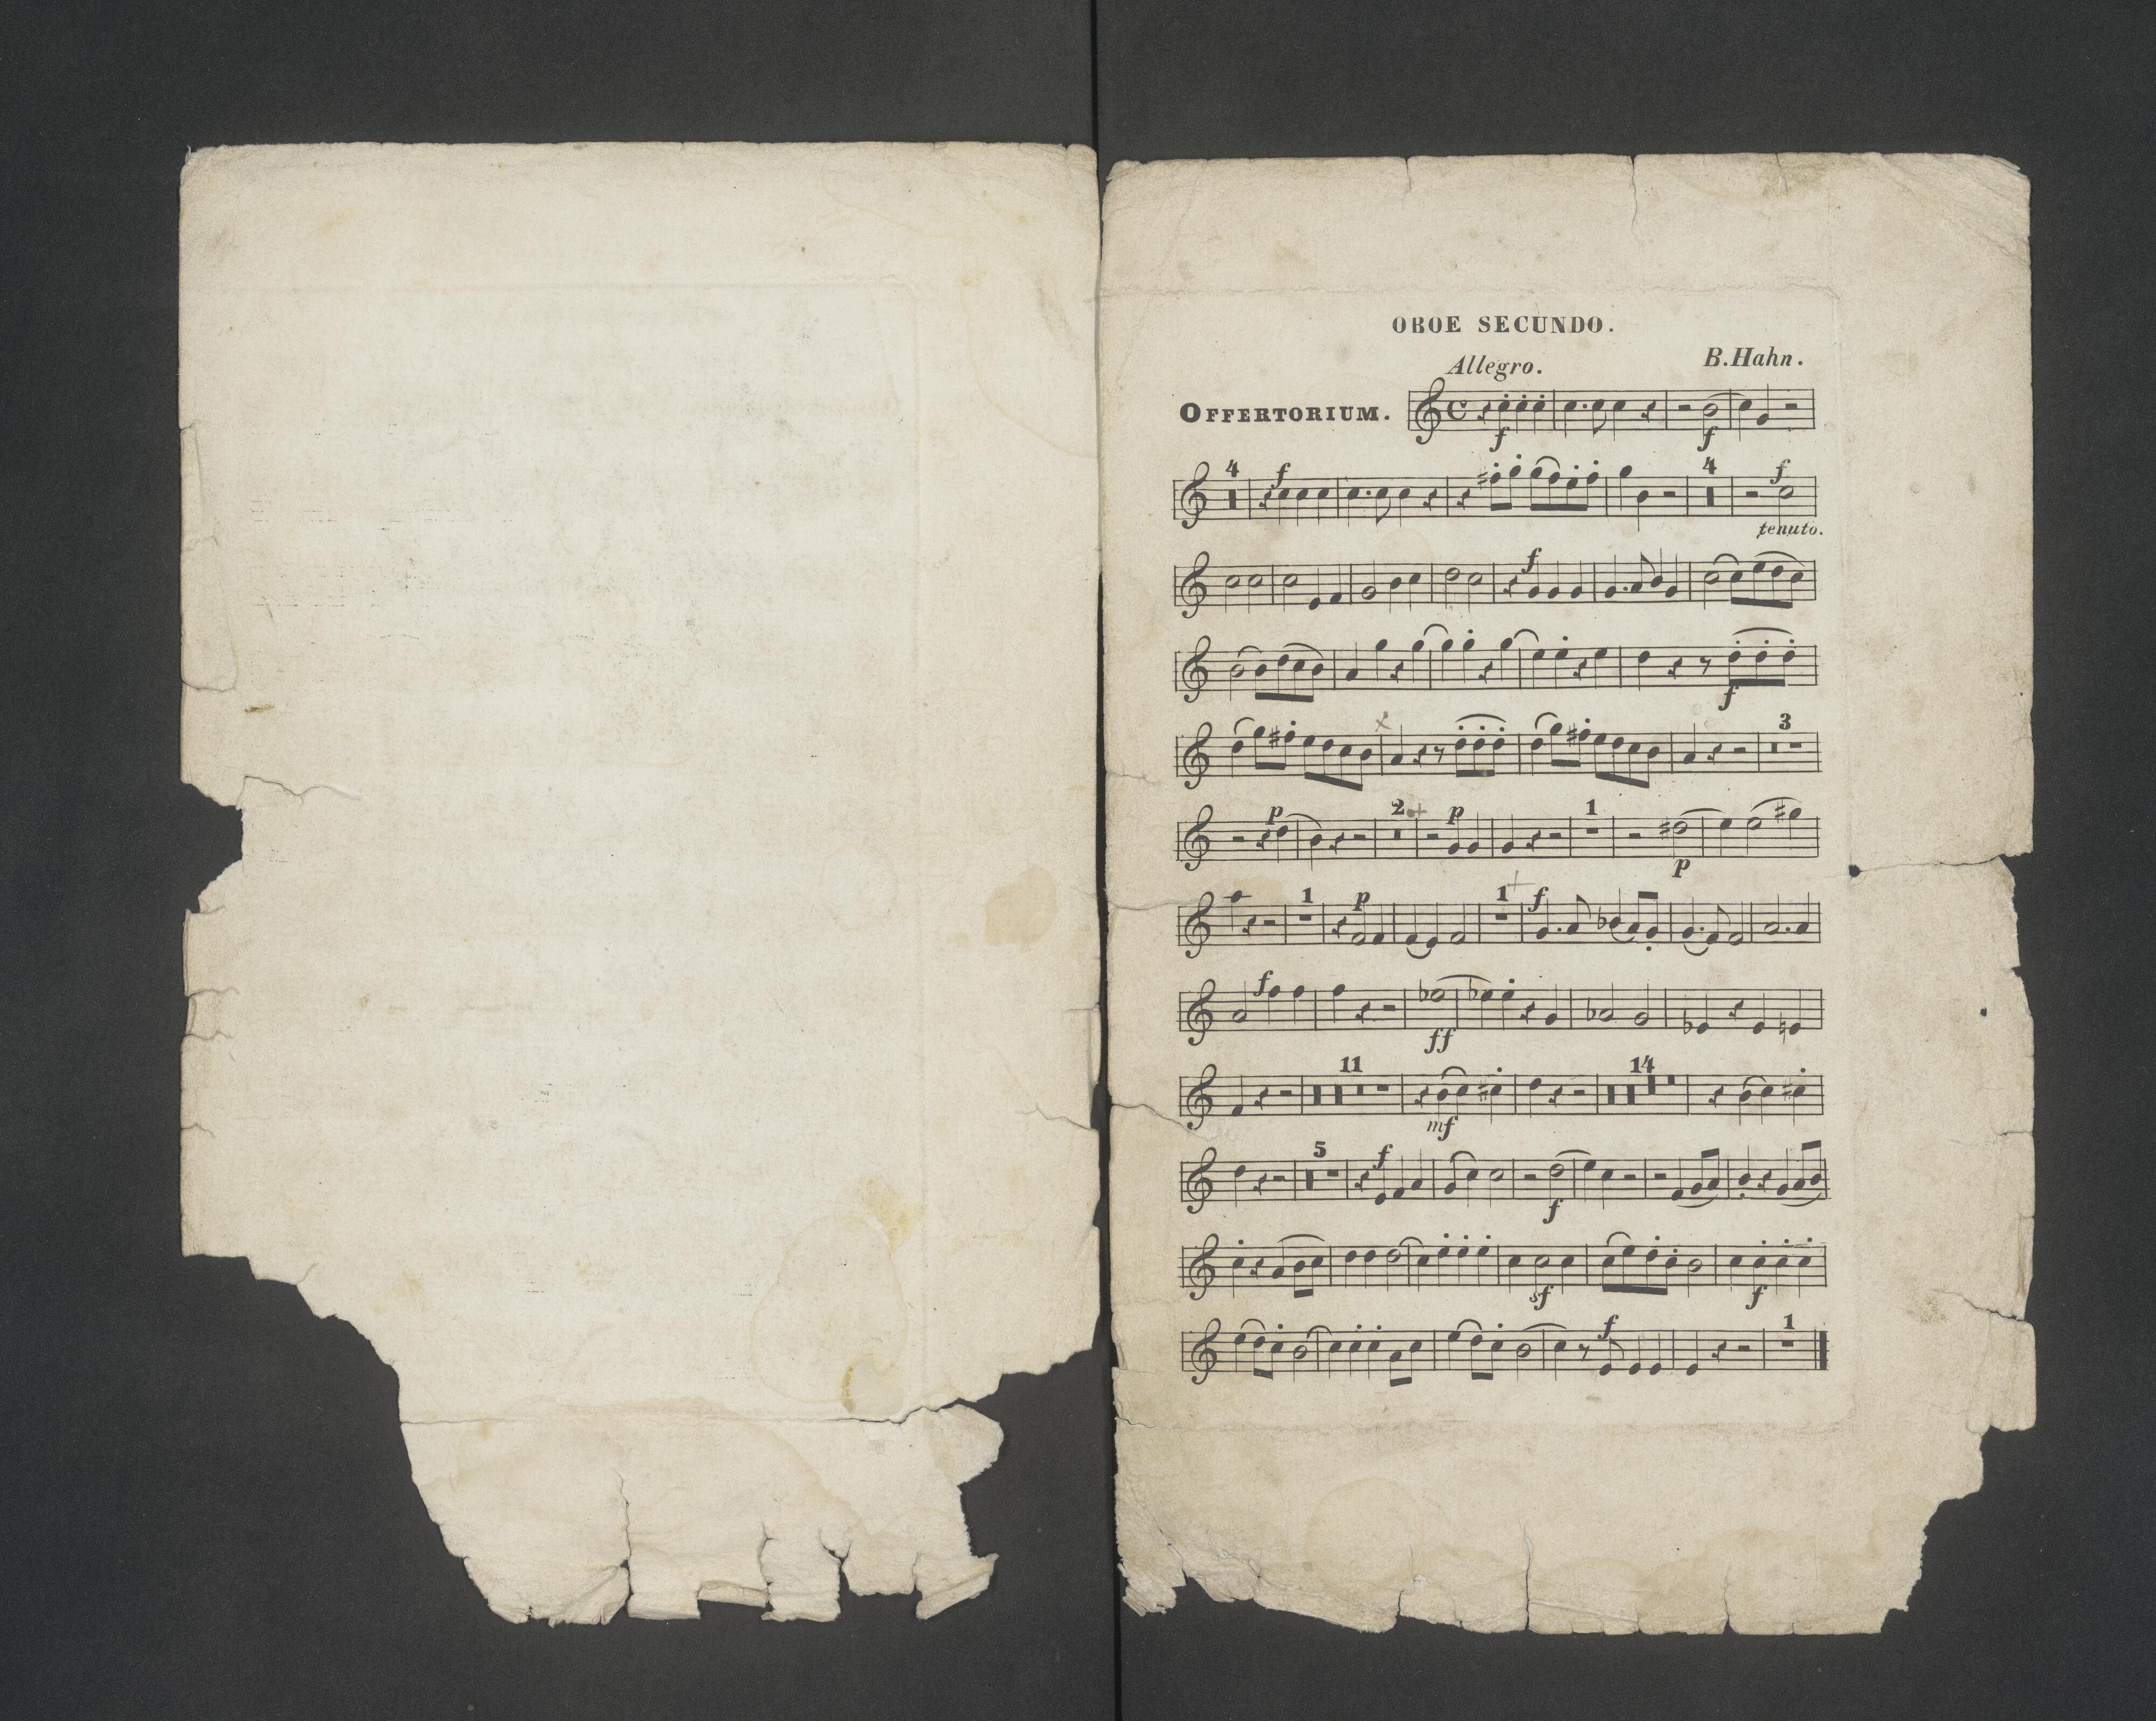 OBOE SECUNDO.
Allegro. B. Hahn.
OFFERTORIUM.
f f
4 f 4 f
tenuto.
f
f
3
p 2 p 1
p
1 p 1 f
f
ff
11 14
mf
5 f
f
sf f
f 1